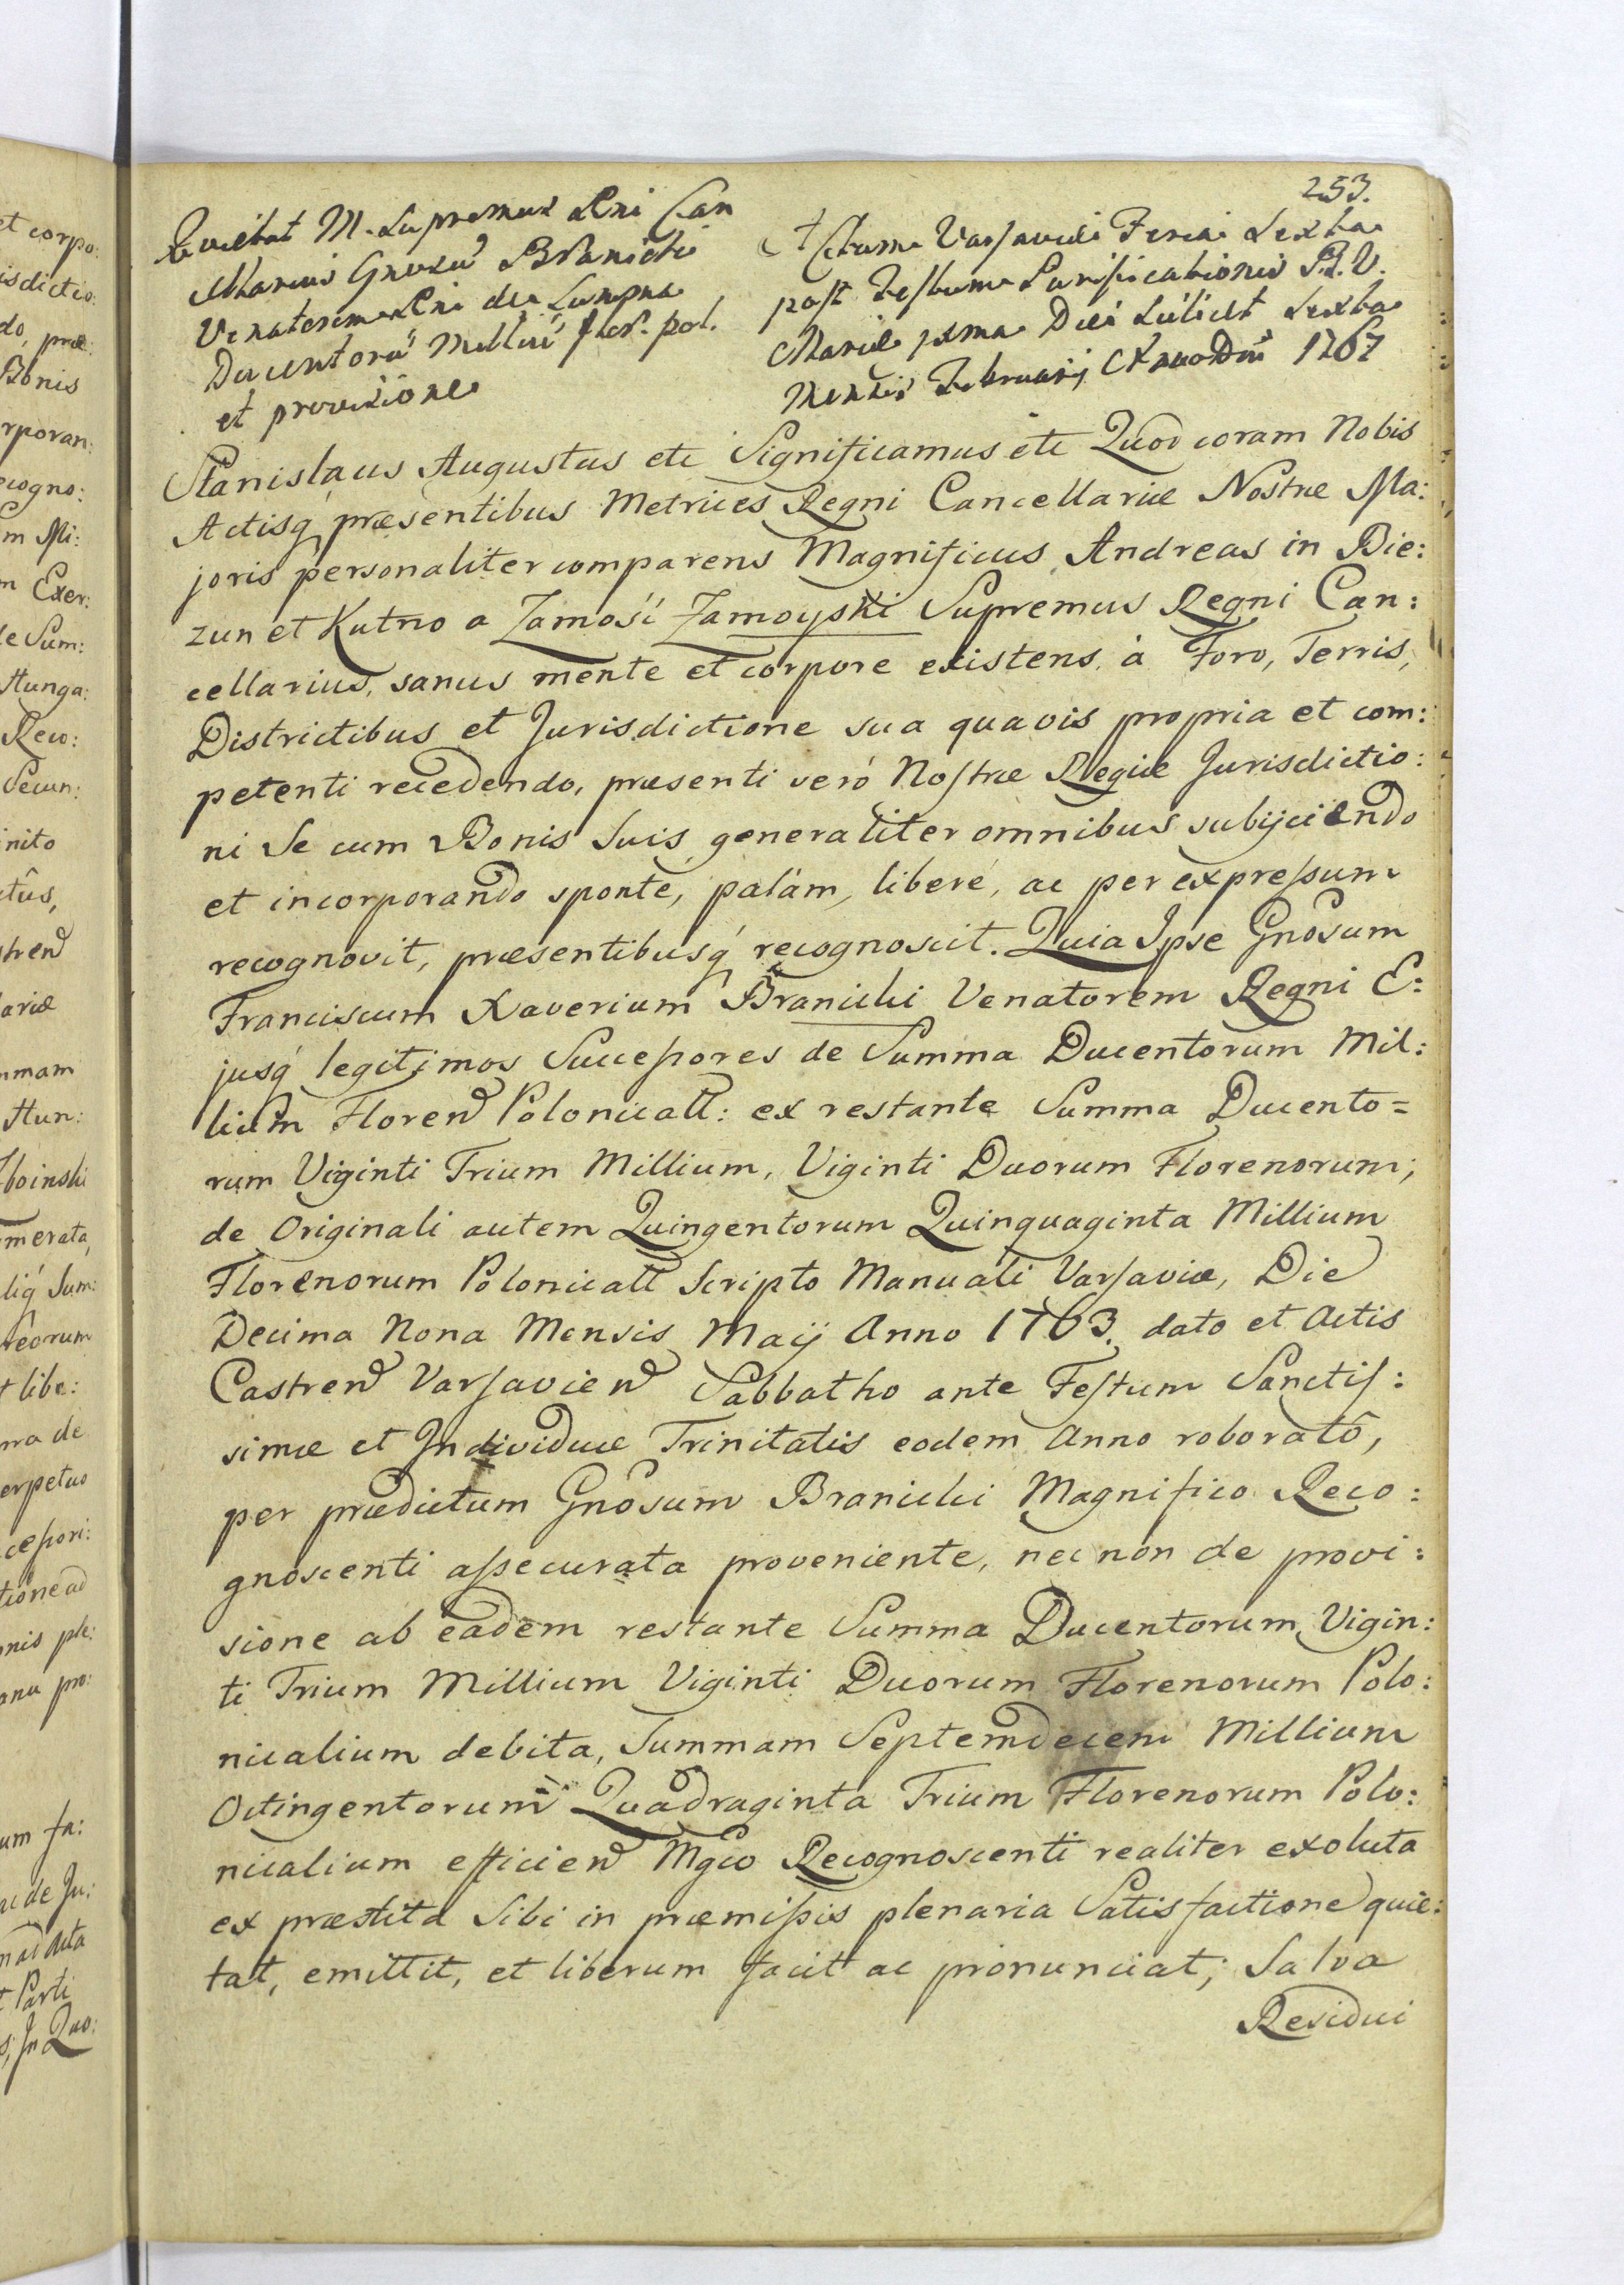 253.
Quietat M. Supremus Rni Can
cellarius Gnosũ Branicki
Venatorem Rni de Sumpna
Ducentorũ Milliũ flor. pol.
et provisione
Actum Varsaviæ Feria Sexta
post Festum Purificationis B. V.
Mariæ pxma Die scilicet Sexta
Mensis Februarij Anno Dni 1767
Stanislaus Augustus etc Significamus etc Quod coram Nobis
Actisq præsentibus Metrices Regni Cancellariæ Nostræ Ma:
joris personaliter comparens Magnificus Andreas in Bie:
zun et Kutno a Zamość Zamoyski Supremus Regni Can:
cellarius, sanus mente et corpore existens, à Foro, Terris,
Districtibus et Jurisdictione sua quavis propria et com:
petenti recedendo, præsenti verò Nostræ Regiæ Jurisdictio:
ni Se cum Bonis Suis generaliter omnibus subijciendo
et incorporando sponte, palàm, liberè, ac per expressum
recognovit, præsentibusq recognoscit. Quia Ipse Gnõsum
Franciscum Xaverium Branicki Venatorem Regni E:
jusq legitimos Successores de Summa Ducentorum Mil:
lium Floren Polonicall: ex restante Summa Ducento=
rum Viginti Trium Millium, Viginti Duorum Florenorum;
de Originali autem Quingentorum Quinquaginta Millium
Florenorum Polonicall Scripto Manuali Varsaviæ, Die
Decima Nona Mensis Maij Anno 1763. dato et Actis
Castren Varsavien Sabbatho ante Festum Sanctis:
simæ et Individuæ Trinitatis eodem Anno roboratô,
per prædictum Gnõsum Branicki Magnifico Reco:
gnoscenti assecurata proveniente, nec non de provi:
sione ab eadem restante Summa Ducentorum Vigin:
ti Trium Millium Viginti Duorum Florenorum Polo:
nicalium debita, Summam Septemdecem Millium
Octingentorum Quadraginta Trium Florenorum Polo:
nicalium efficien Mgco Recognoscenti realiter exoluta
ex præstita Sibi in præmissis plenaria Satisfactione quie:
tat, emittit, et liberum facit ac pronunciat; Salva
Residui